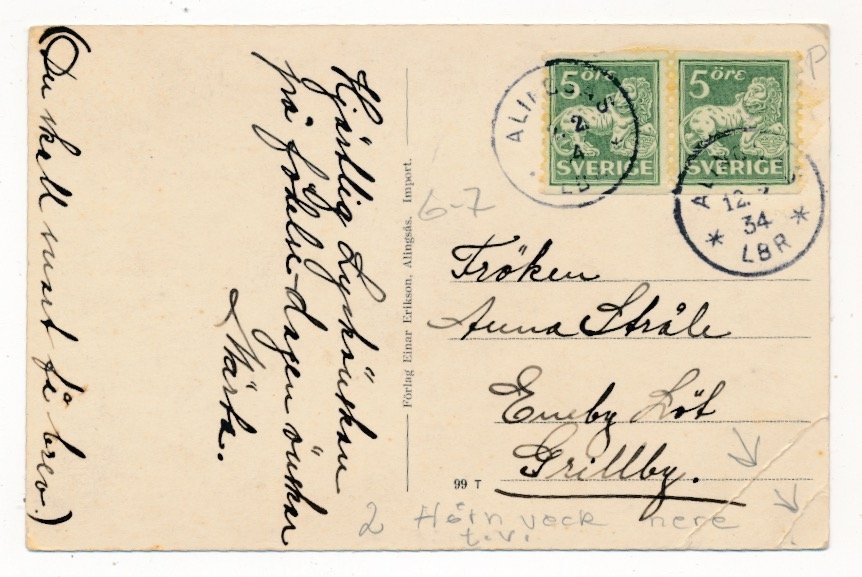 (Du skall snart få brev.)
Hjärtlig Lyckönskan
på födelse-dagen önskar
Märta.
Förlag Einar Erikson, Alingsås. Import.
5 öre
SVERIGE
5 öre
SVERIGE
ALINGSÅS
LBR
12.
34
LBR
P
6-7
Fröken
Anna Stråle
Eneby Löt
Grillby.
99 T
2 Hörn veck nere
t.v.